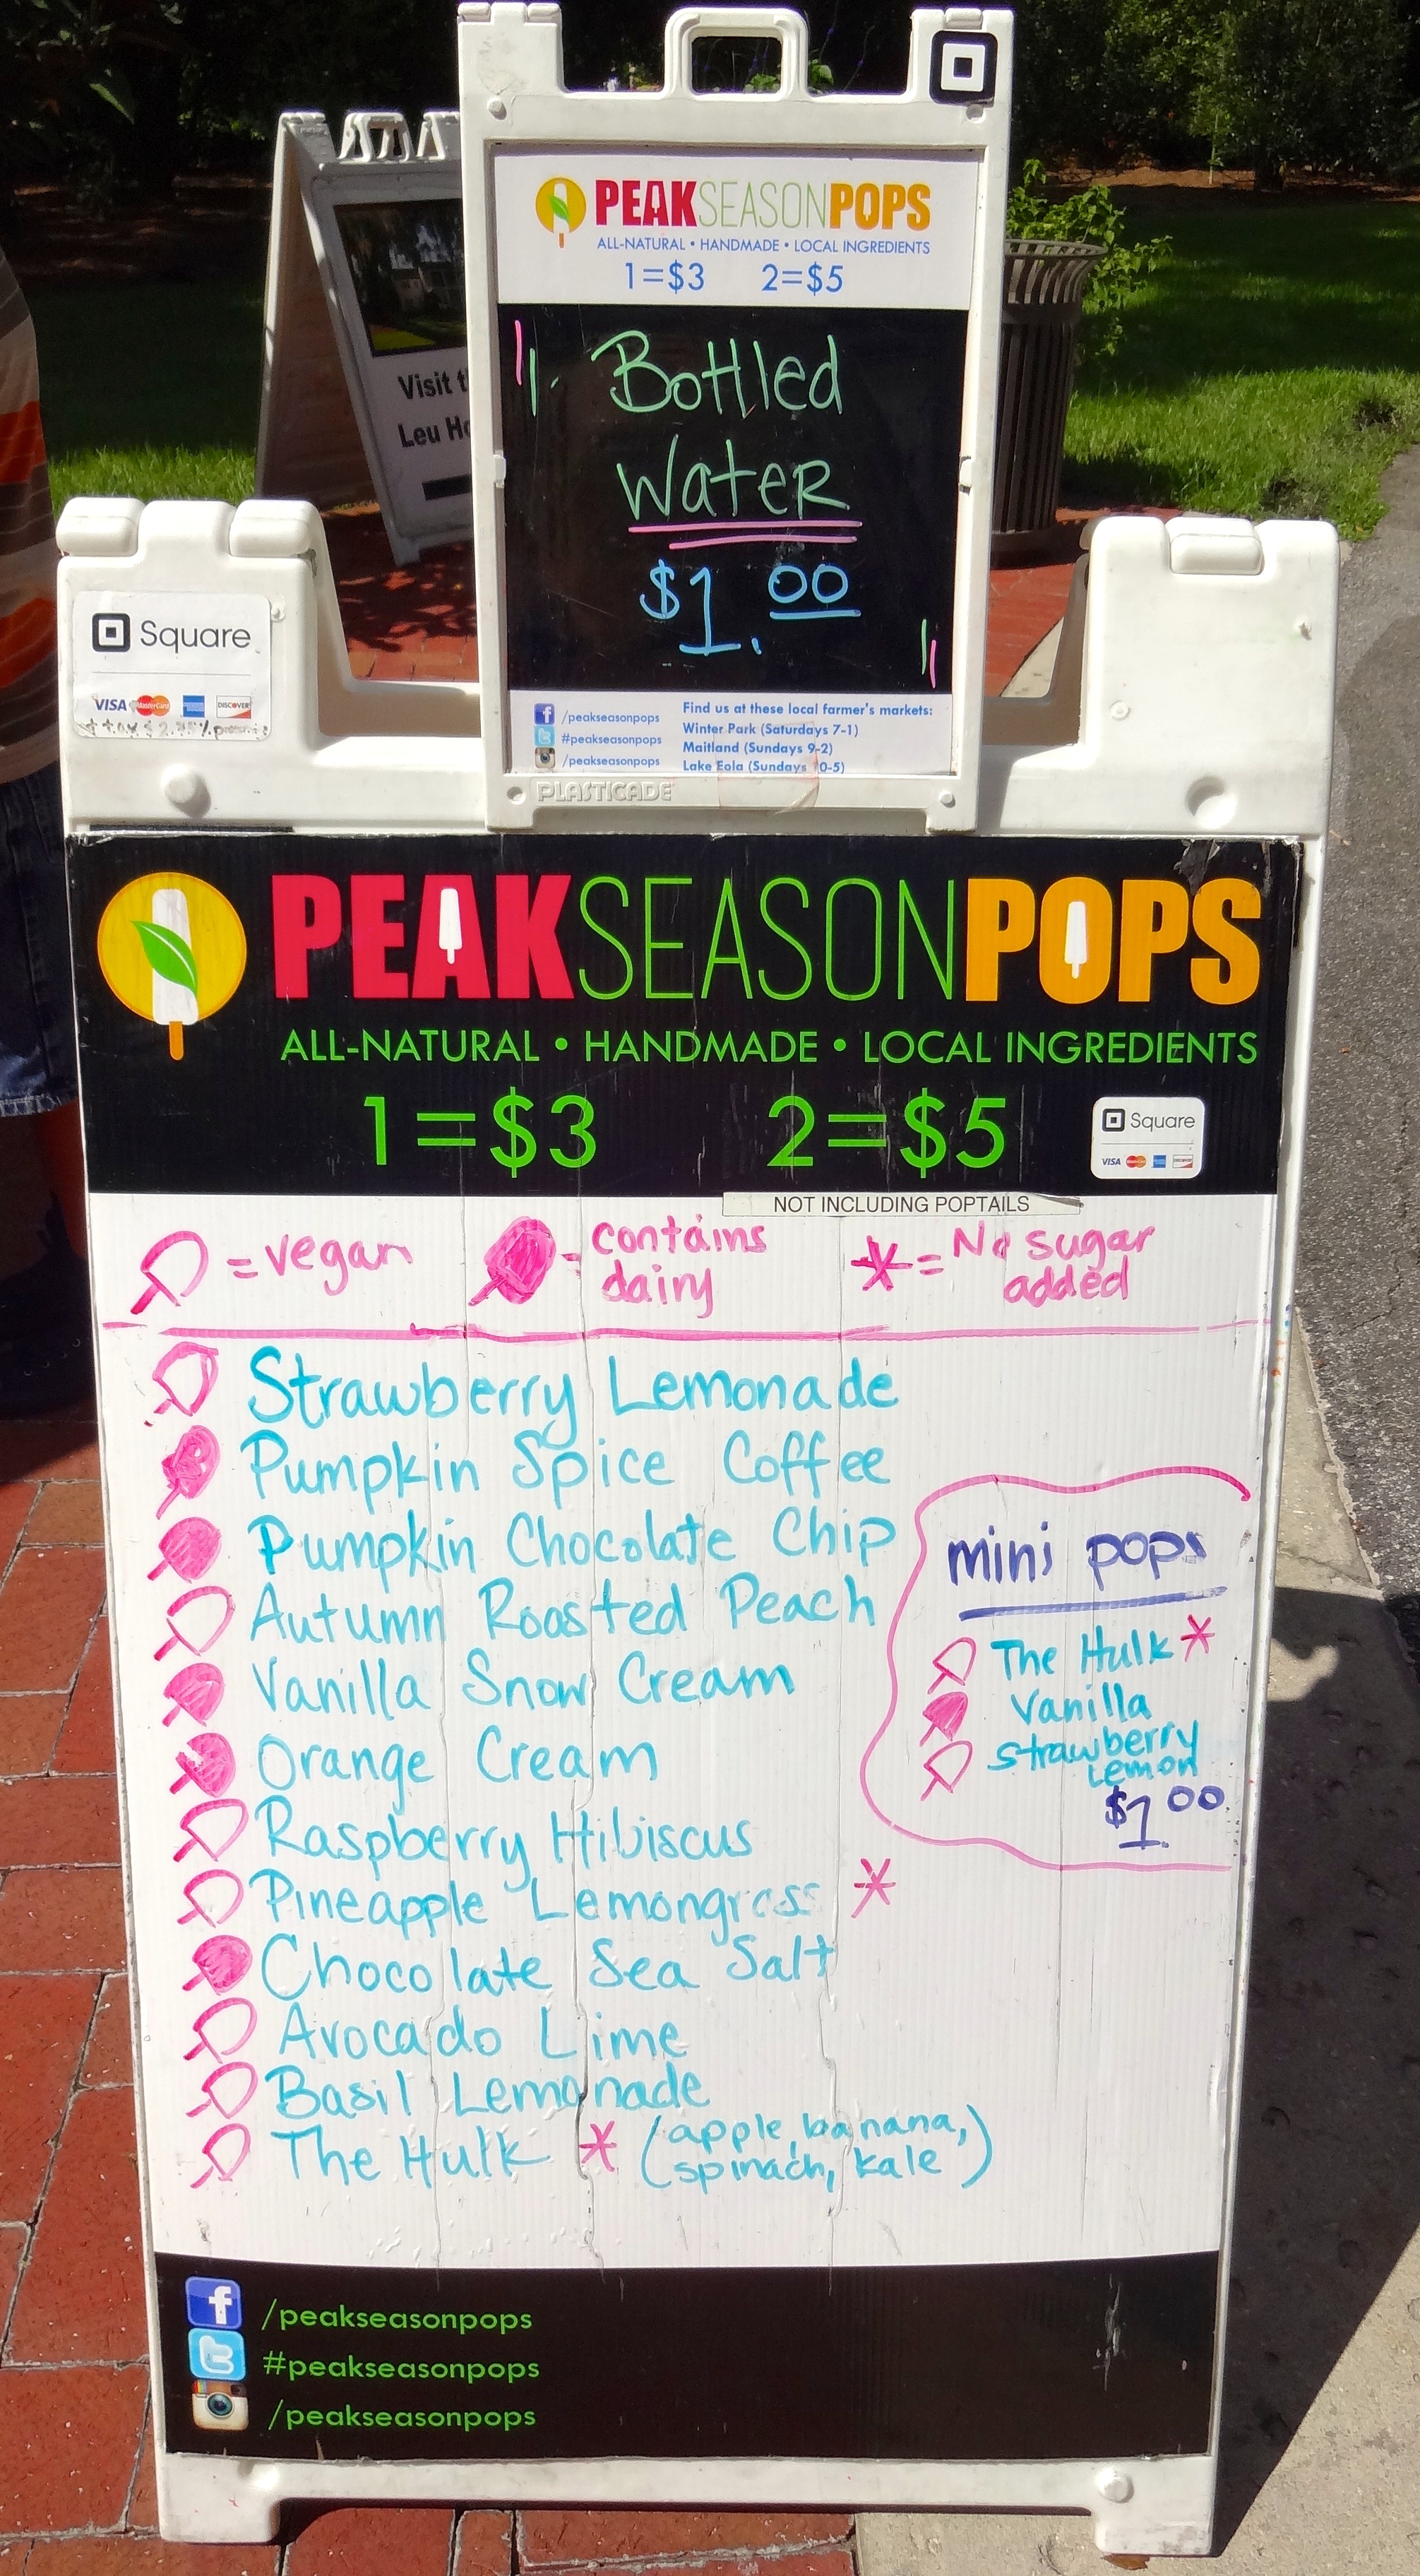 PEAKSEASONPOPS
ALL-NATURAL • HANDMADE • LOCAL INGREDIENTS
1=$3 2=$5
Bottled
Water
$1.00
Visit
Leu
Square
VISA MasterCard DISCOVER
/peakseasonpops
#peakseasonpops
/peakseasonpops
Find us at these local farmer's markets:
Winter Park (Saturdays 7-1)
Maitland (Sundays 9-2)
Lake Eola (Sundays 0-5)
PLASTICADE
PEAKSEASONPOPS
ALL-NATURAL • HANDMADE • LOCAL INGREDIENTS
1=$3 2=$5
Square
VISA
NOT INCLUDING POPTAILS
= vegan
= contains
dairy
* = No sugar
added
Strawberry Lemonade
Pumpkin Spice Coffee
Pumpkin Chocolate Chip
Autumn Roasted Peach
Vanilla Snow Cream
Orange Cream
Raspberry Hibiscus
Pineapple Lemongrass *
Chocolate Sea Salt
Avocado Lime
Basil Lemonade
The Hulk * (apple, banana,
spinach, kale)
mini pops
The Hulk *
Vanilla
Strawberry
Lemon
$1.00
/peakseasonpops
#peakseasonpops
/peakseasonpops